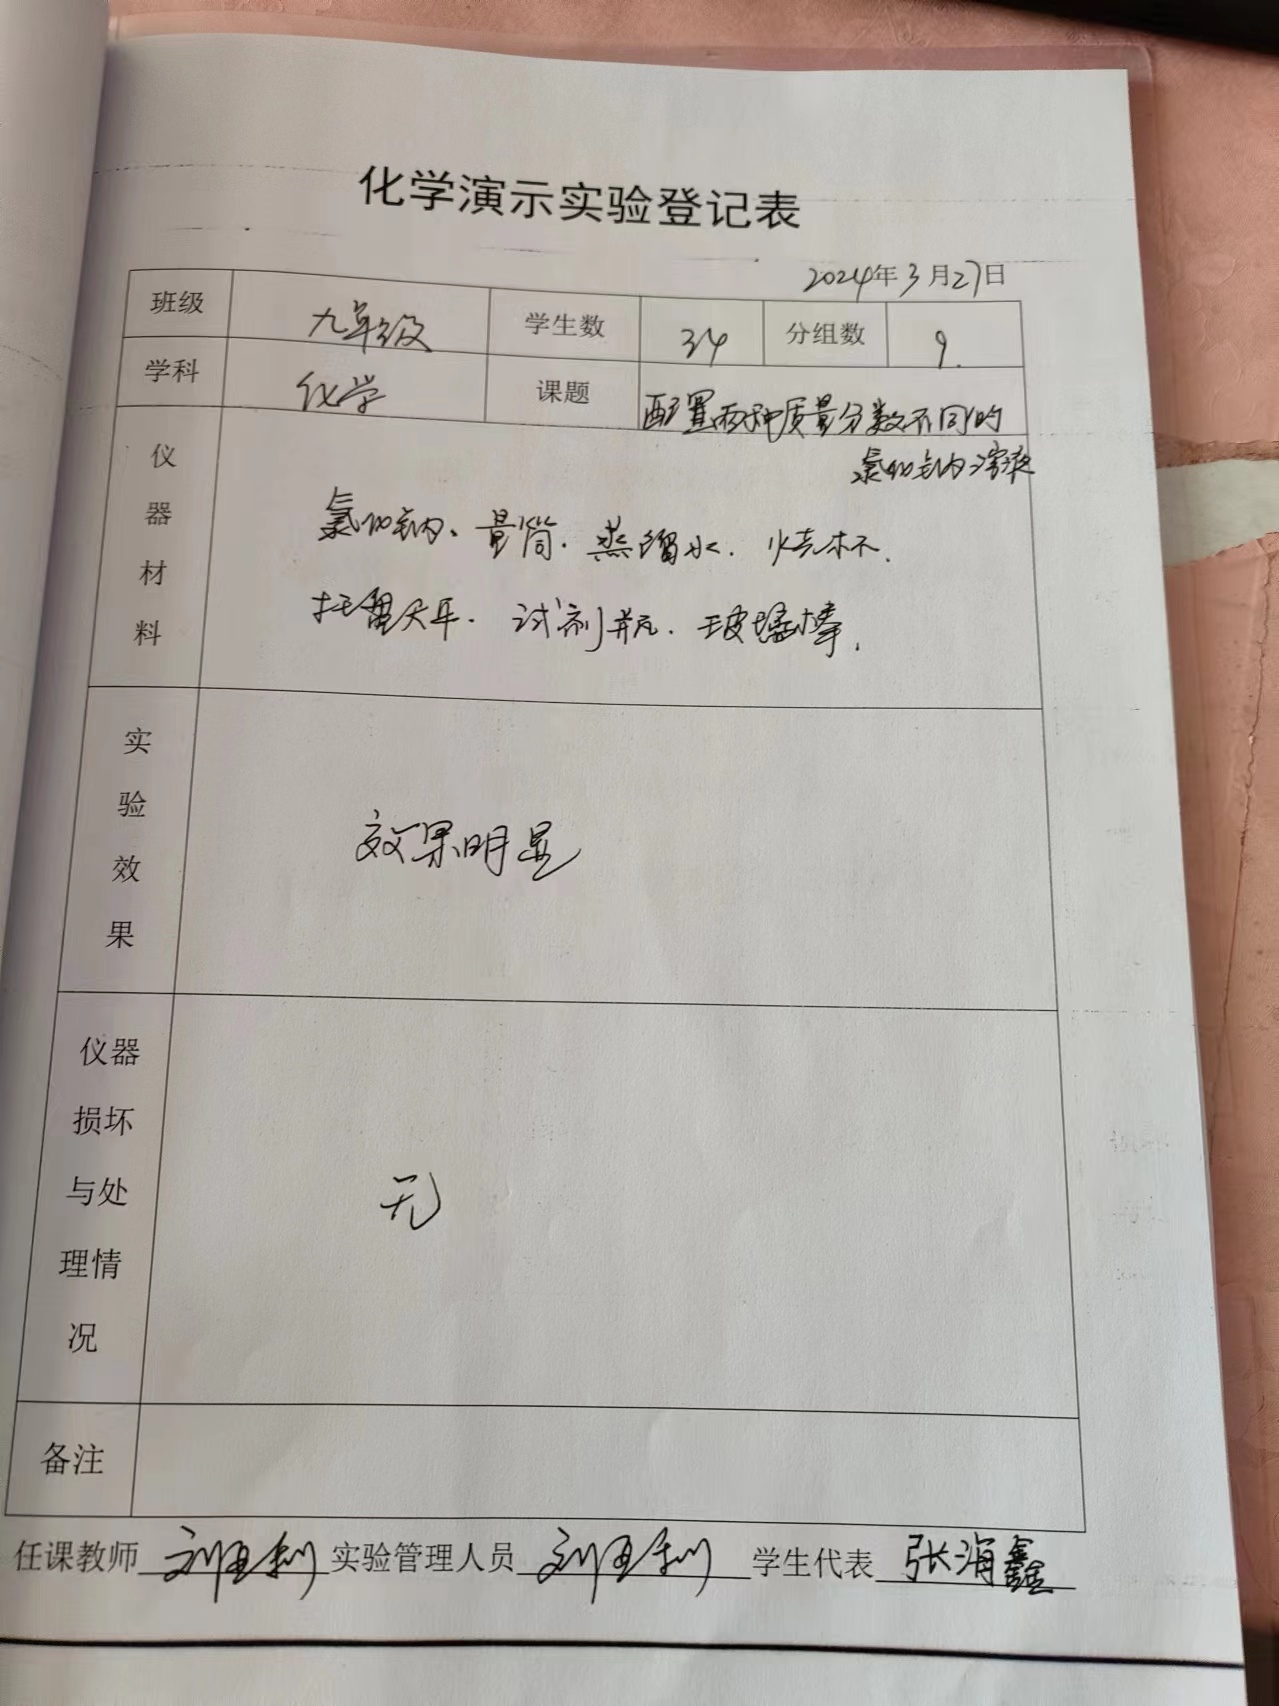 化学演示实验登记表
2024年3月27日
班级 九年级 学生数 34 分组数 9.
学科 化学 课题 配置两种质量分数不同的
氯化钠溶液
仪器材料 氯化钠、量筒.蒸馏水.烧杯.
托盘天平.试剂瓶.玻璃棒.
实验效果 效果明显
仪器损坏与处理情况 无
备注
任课教师 刘 利 实验管理人员 刘 利 学生代表 张消鑫